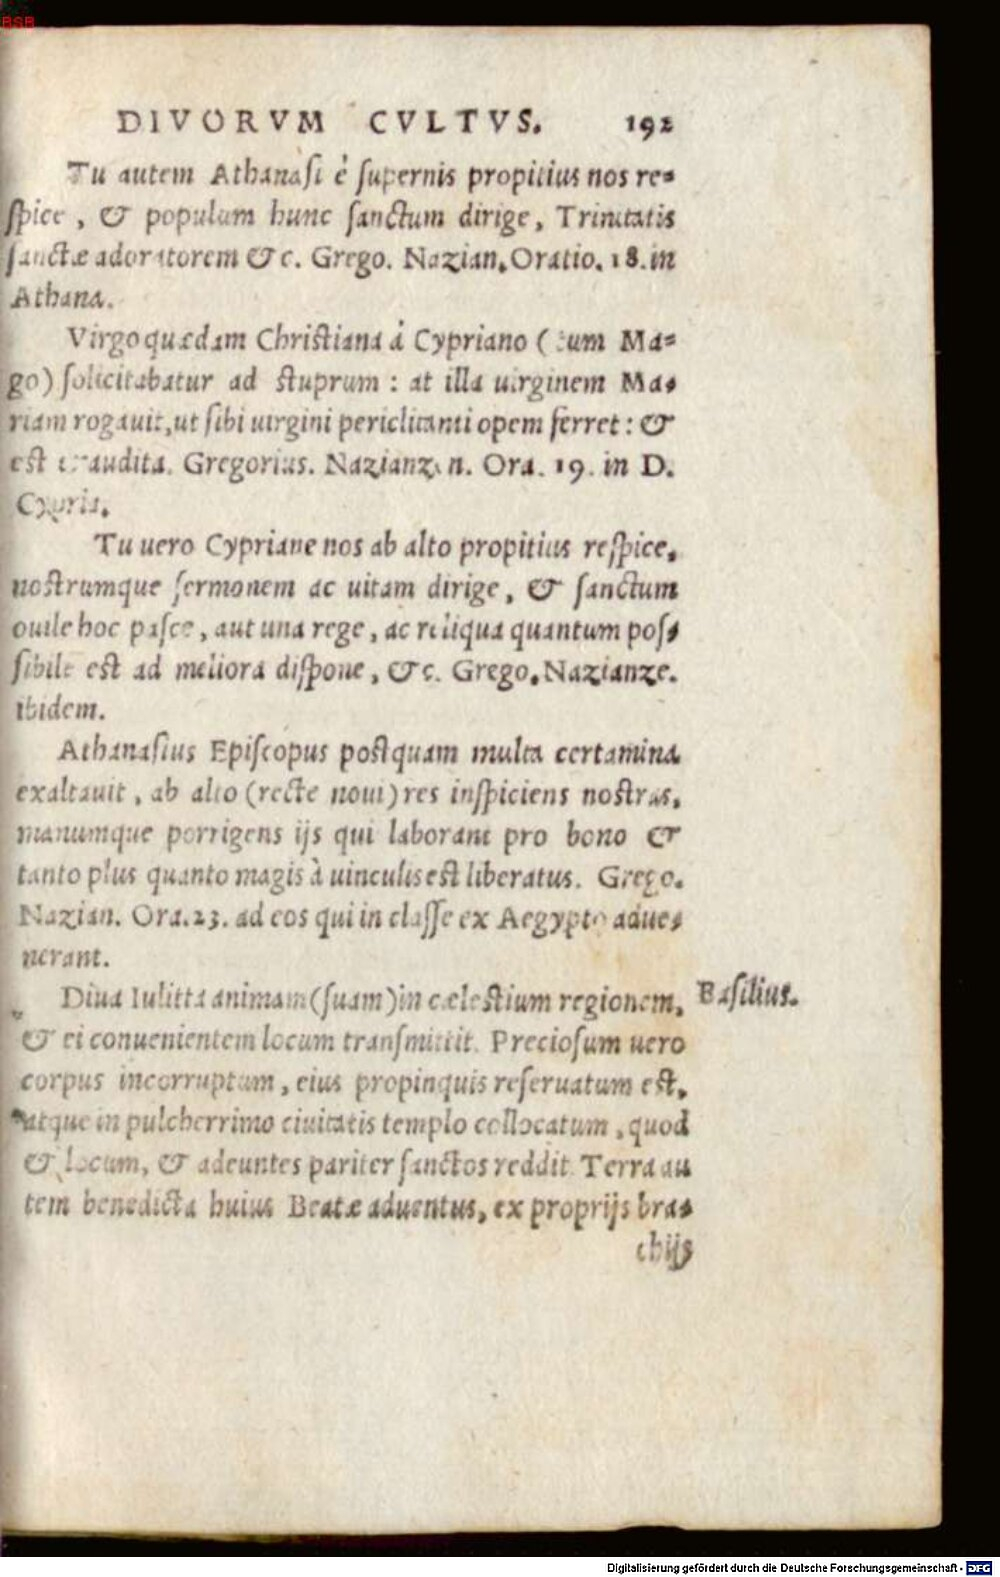 BSB
DIVORVM CVLTVS. 192
Tu autem Athanasi è supernis propitius nos re-
spice, & populum hunc sanctum dirige, Trinitatis
sanctæ adoratorem &c. Grego. Nazian. Oratio. 18. in
Athana.
Virgo quædam Christiana à Cypriano (tum Ma-
go) solicitabatur ad stuprum: at illa uirginem Ma-
riam rogauit, ut sibi uirgini periclitanti opem ferret: &
est exaudita. Gregorius. Nazianzen. Ora. 19. in D.
Cypria.
Tu uero Cypriane nos ab alto propitius respice,
nostrumque sermonem ac uitam dirige, & sanctum
ouile hoc pasce, aut una rege, ac reliqua quantum pos-
sibile est ad meliora dispone, &c. Grego. Nazianze.
ibidem.
Athanasius Episcopus postquam multa certamina
exaltauit, ab alto (recte noui) res inspiciens nostras,
manumque porrigens ijs qui laborant pro bono &
tanto plus quanto magis à uinculis est liberatus. Grego.
Nazian. Ora. 23. ad eos qui in classe ex Aegypto adue-
nerant.
Diua Iulitta animam (suam) in cælestium regionem, Basilius.
& ei conuenientem locum transmittit. Preciosum uero
corpus incorruptum, eius propinquis reseruatum est,
atque in pulcherrimo ciuitatis templo collocatum, quod
& locum, & adeuntes pariter sanctos reddit. Terra au
tem benedicta huius Beatæ aduentus, ex proprijs bra-
chijs
Digitalisierung gefördert durch die Deutsche Forschungsgemeinschaft - DFG